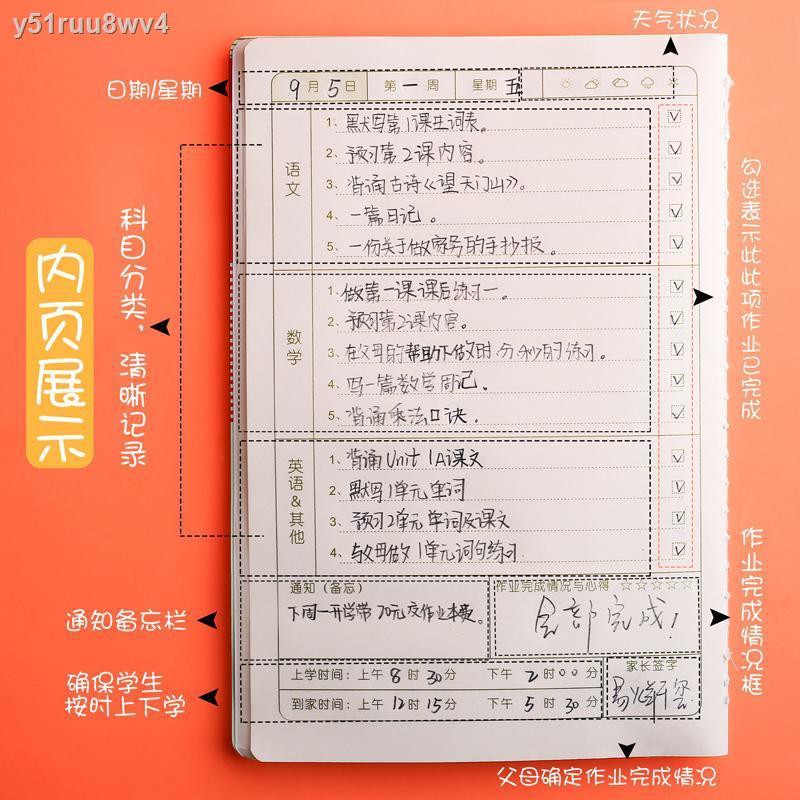 y51ruu8wv4
天气状况
日期/星期
9月5日 第一周 星期五
语文
1、默写第1课生词表。
2、预习第2课内容。
3、背诵古诗《望天门山》。
4、一篇日记。
5、一份关于做家务的手抄报。
数学
1、做第一课课后练习一。
2、预习第2课内容。
3、在父母的帮助下做时、分、秒的练习。
4、写一篇数学周记。
5、背诵乘法口诀。
英语&其他
1、背诵Unit 1A课文
2、默写1单元单词
3、预习2单元单词及课文
4、与父母做1单元词句练习
通知（备忘）
下周一开学带70元交作业本费。
作业完成情况与心得 ☆☆☆☆☆
全部完成！
上学时间：上午8时30分 下午2时00分
到家时间：上午12时15分 下午5时30分
家长签字
科目分类，清晰记录
内页展示
勾选表示此此项作业已完成
通知备忘栏
作业完成情况框
确保学生
按时上下学
父母确定作业完成情况